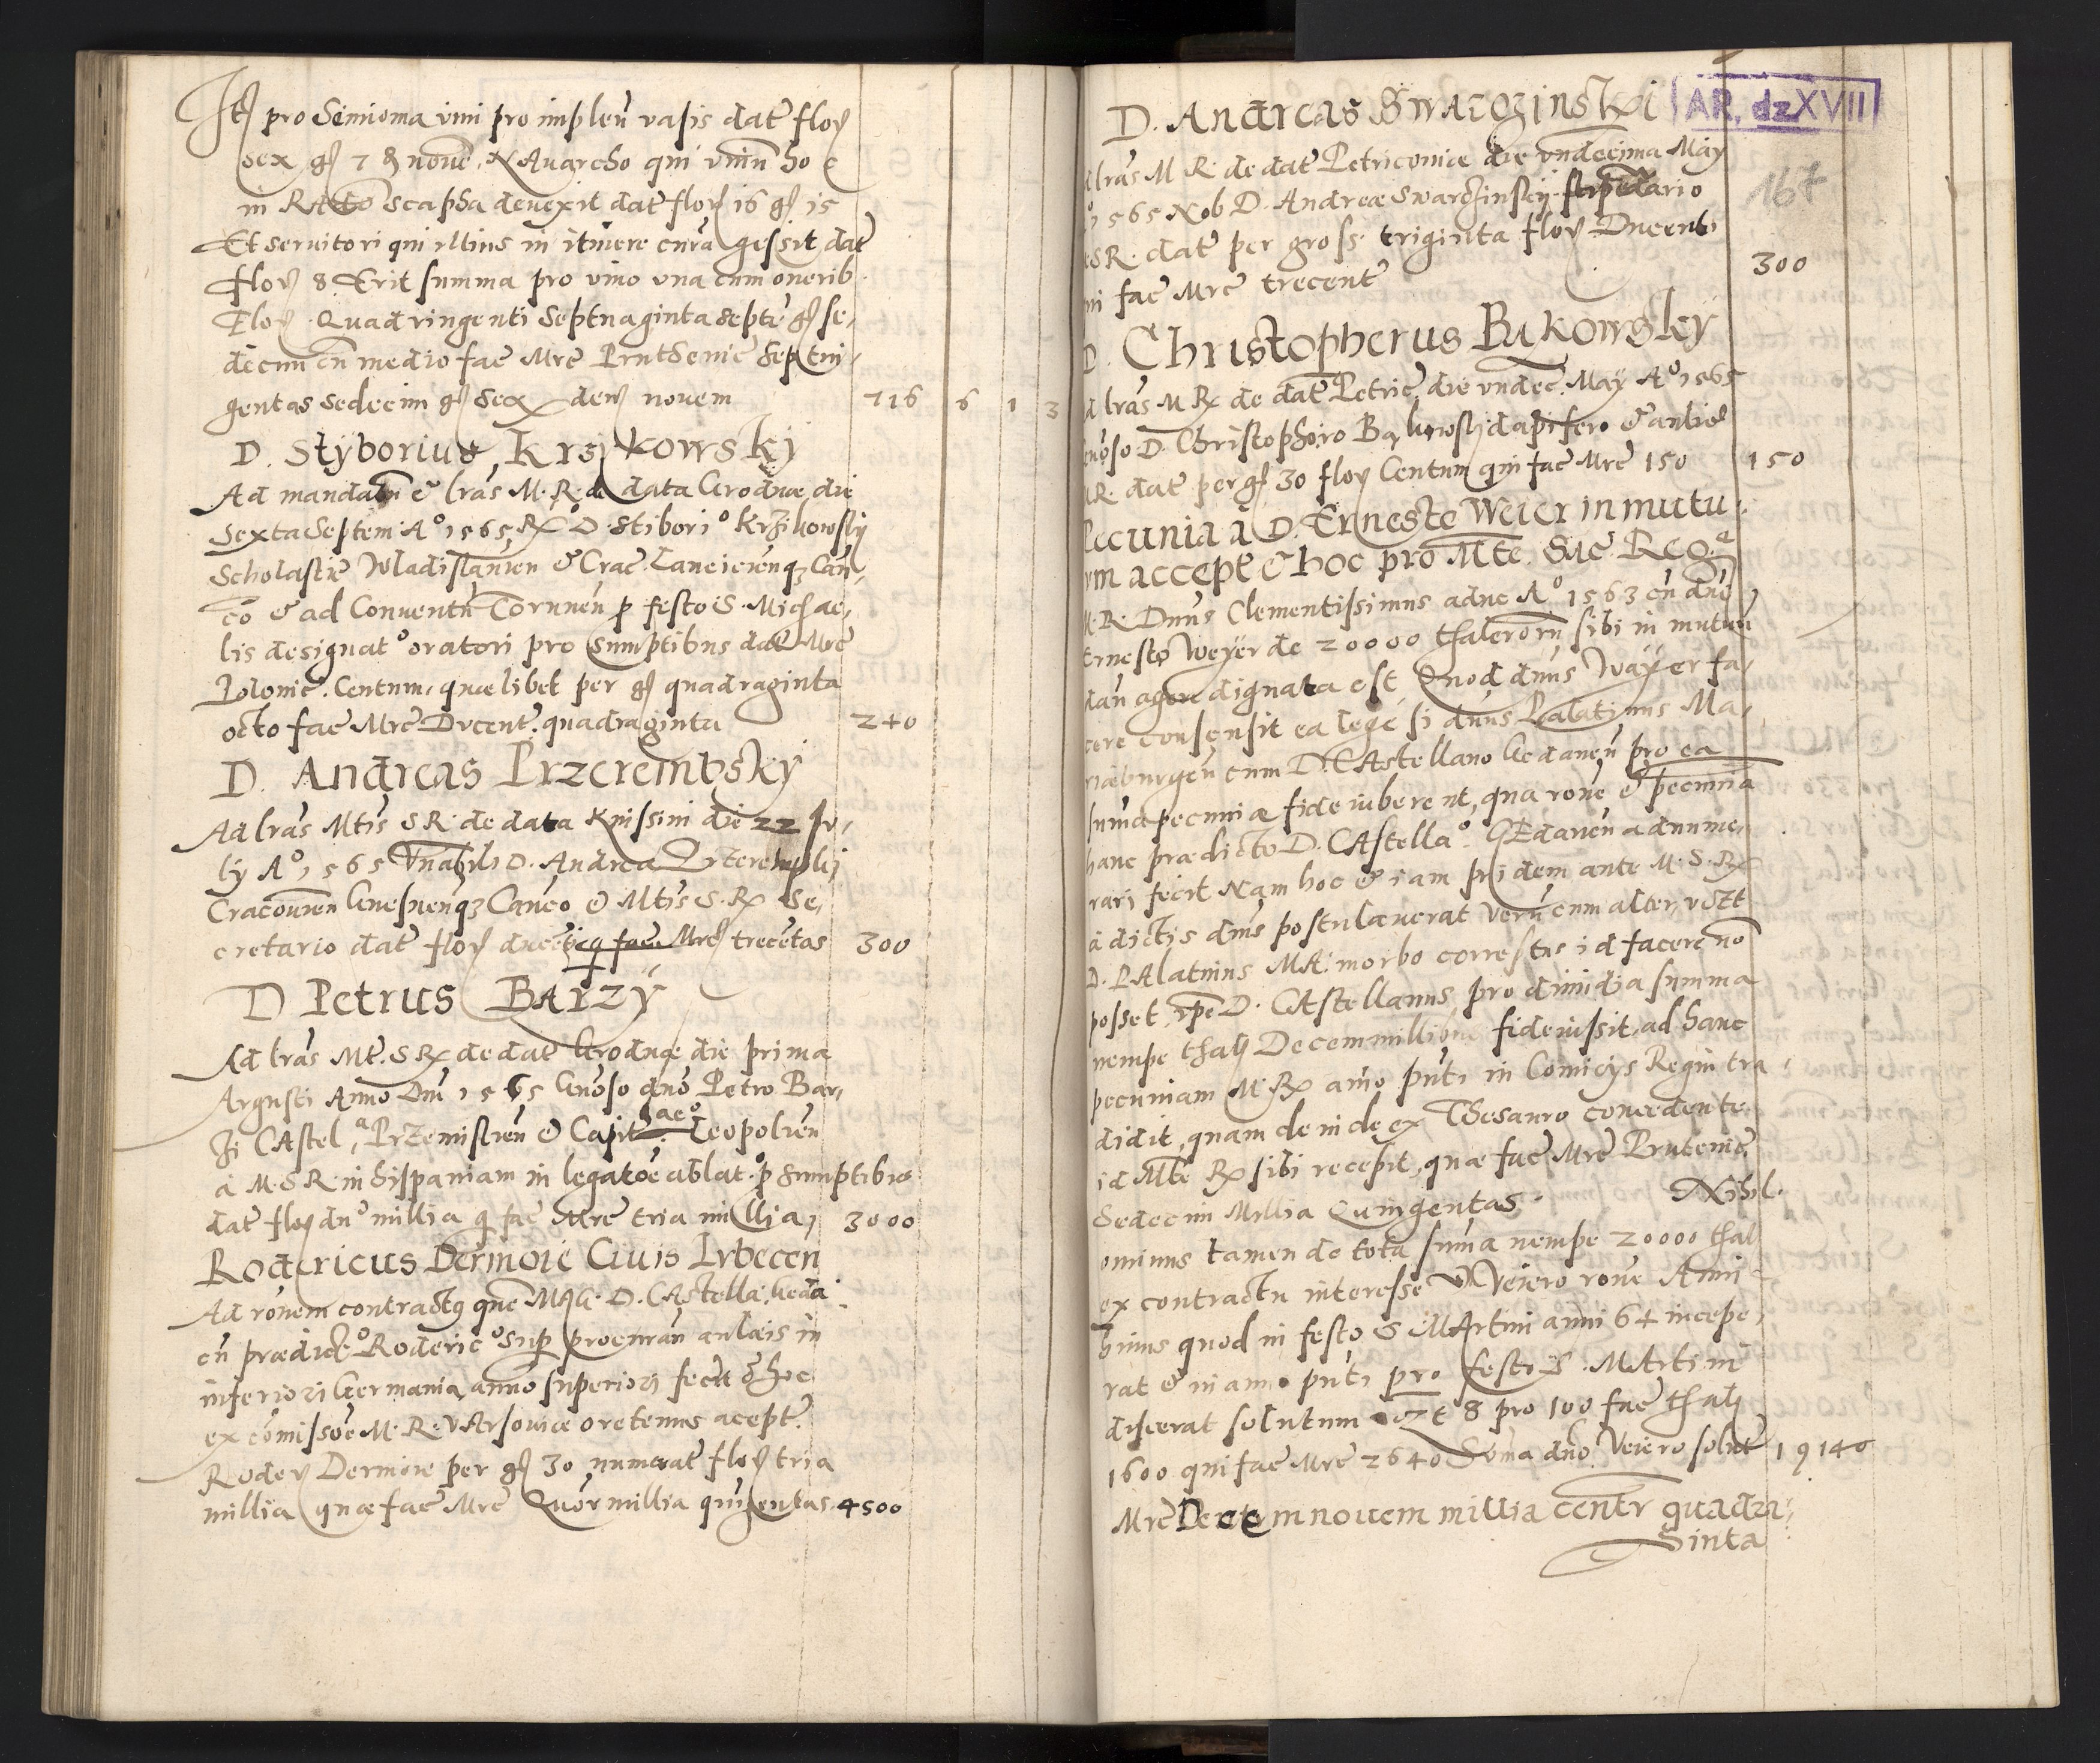 Itẽ pro Seminoma vini pro impleñ vasis dat floꝝ
sex gꝭ 7 & novẽ. NAuarcho qui vinũ hoc
in RATto scapha devexit dat floꝝ 16 gꝭ 15
Et seruitori qui illius in itinere curã gessit dat
floꝝ 8 Erit summa pro vino vna cum onerib
Floꝝ Quadringenti Septuaginta septẽ gꝭ se,
decim cũ medio fac Mrc PrutSenic Septin,
gentas sedecim gꝭ Sex denꝭ novem 716 6 1 3
D. Styborius Krzykowsky
Ad mandatũ & lrãs M. R. de data Grodnæ die
Sexta Septem. A° 1565 Rdo D. Stibori° Krzikowsky
Scholastic Wladislauień & Crac. Lancicienqȝ Cañ,
co & ad Conuentũ Toruneñ p festo S. Michae,
lis designat° oratori pro sumptibus dat Mrc
Polonic. Centum, quælibet per gꝭ quadraginta
octo fac Mrc Dvcent. quadraginta 240
D. Andreas Przerembsky
Ad lrãs Mtis S R. de data Knissini die 22 Ju,
ly A° 1565 Vnabili D. Andrea Przerembskj
Cracouień Gnesneñqȝ Canco & Mtis S. R. Se,
cretario dat floꝝ ducẽti q fac Mrc trecẽtas 300
D Petrus BARzÿ
Ad lrãs Mt. S R de dat Grodnæ die prima
Argusti Anno Dni 1565 Gnoso dno Petro Bar,
zi CAstel,ª Przemislień & Capit aco Leopolień
a M. S R. in Hispaniam in legatõe ablat.° p Sumptibus
dat floꝝ du° millia q fac Mrc tria millia, 3000
Rodericus Dermoie Ciuis Lvbecen
Ad rõnem contractꝯ quẽ MgG. D. CAstella. Geda
cũ prædict° Roderic° sup procurañ anlæis in
inferiori Germania anno superiori fecit & hoc
ex cõmissõe M. R. VArsouiæ oretenus acept.
Roderꝭ Dermoie per gꝭ 30 numerat floꝝ tria
millia quæ fac Mrc Quõr millia quingentas 4500
D. Andreas Swarczinski
AR. dz XVII
167
lrãs M R. de dat Petricouiæ die vndecima May
1565 Nob D. Andreæ Swarczinsky stipedario
SR. dat per gross. triginta floꝝ Ducenti
ni fac Mrc trecent 300
D. Christopherus Bykowsky
d lrãs M R de dat Petric. die vndec. May A° 1565
enoso D. Christophoro Bykowsky dapifero & aulic
R. dat per gꝭ 30 floꝝ Centum qui fac Mrc 150 150
Pecunia a D. Erneste Weier in mutu
vm accept & hoc pro Mte. Sac Reg.ª
M. R. Dnns Clementissimus adhuc A° 1563 cũ dno
Ernesto Weyer de 20000 thalerorũ sibi in mutuũ
dañ agere dignata est Quod dnus Wayer fa,
cere consensit ea lege si dnus Palatinus Ma,
riæburgeñ cum D. CAstellano Gedaneñ pro ea
suma pecuniæ fide iuberent, qua rone & pecunia
hanc prædicto D. CAstella° GEdaneñ adnume,
rari fecit Nam hoc & iam pridem ante M. S. R
a dictis dnus postulauerat verũ cum alter, vtzt
D. PAlatinus MA. morbo correptus id facere nõ
posset, ipe D. CAstellanus pro dimidia summa
nempe thalꝭ Decem millibus fideiussit, ad hanc
pecuniam M. R anno pñti in Comicys Regni tra
didit, quam deinde ex Thesauro concedente
id Mte R sibi recepit, quæ fac Mrc Prutenic
Sedecim Millia Quingentas. Nihil.
ominus tamen de tota suma nempe 20000 thal
ex contractu interesse Weiero rone Anni
huius quod in festo S MArtini anni 64 incepe,
rat & in anno pñti pro festo S. MArtini
discerat solutum vzt 8 pro 100 fac thalꝭ
1600 qui fac Mrc 2640 Sũma dno Veiero solut 19140
Mrc Decem novem millia centr quadra,
Ginta